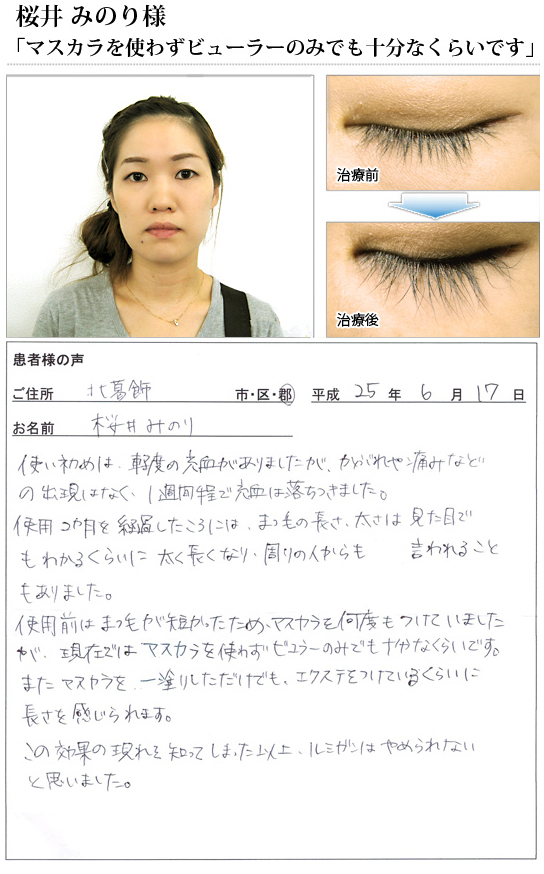 桜井 みのり様
「マスカラを使わずビューラーのみでも十分なくらいです」
治療前
治療後
患者様の声
ご住所 北葛飾 市・区・郡 平成 25 年 6 月 17 日
お名前 桜井みのり
使い初めは、軽度の充血がありましたが、かぶれや痛みなど
の出現はなく、1週間程で充血は落ちつきました。
使用2か月を経過したころには、まつ毛の長さ、太さは見た目で
もわかるくらいに太く長くなり、周りの人からも 言われること
もありました。
使用前はまつ毛が短かったため、マスカラを何度もつけていました
が、現在ではマスカラを使わずビューラーのみでも十分なくらいです。
またマスカラを、一塗りしただけでも、エクステをつけているくらいに
長さを感じられます。
この効果の現れを知ってしまった以上、ルミガンはやめられない
と思いました。